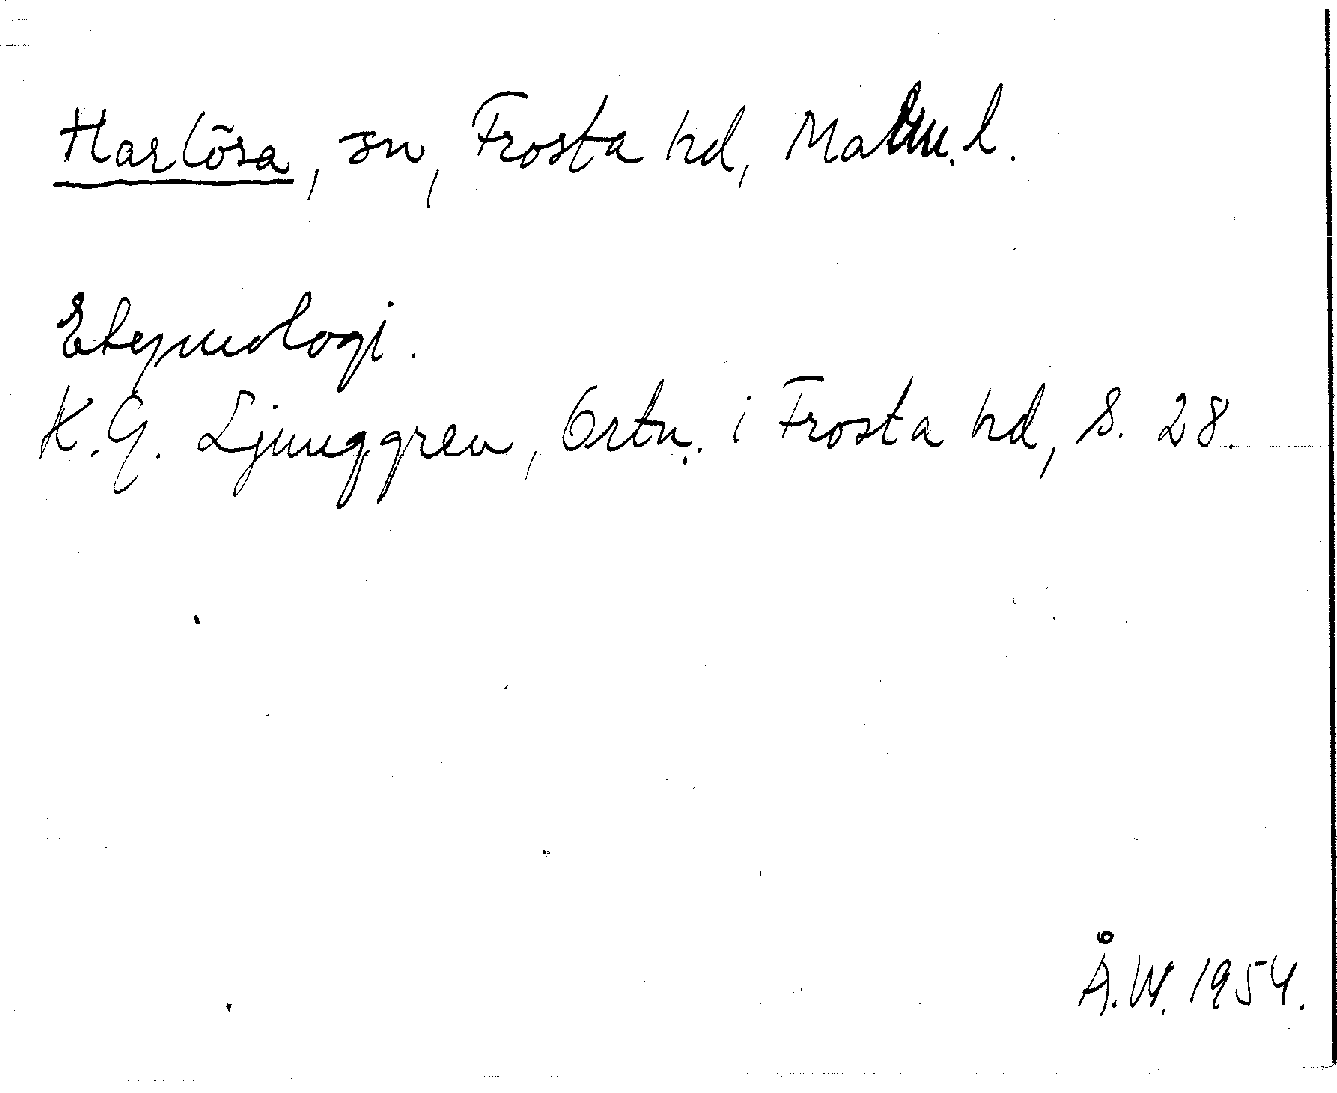 Harlösa, sn, Frosta hd, Malm. l.
Etymologi.
K.G. Ljunggren, Ortn. i Frosta hd, S. 28.
Å.W. 1954.